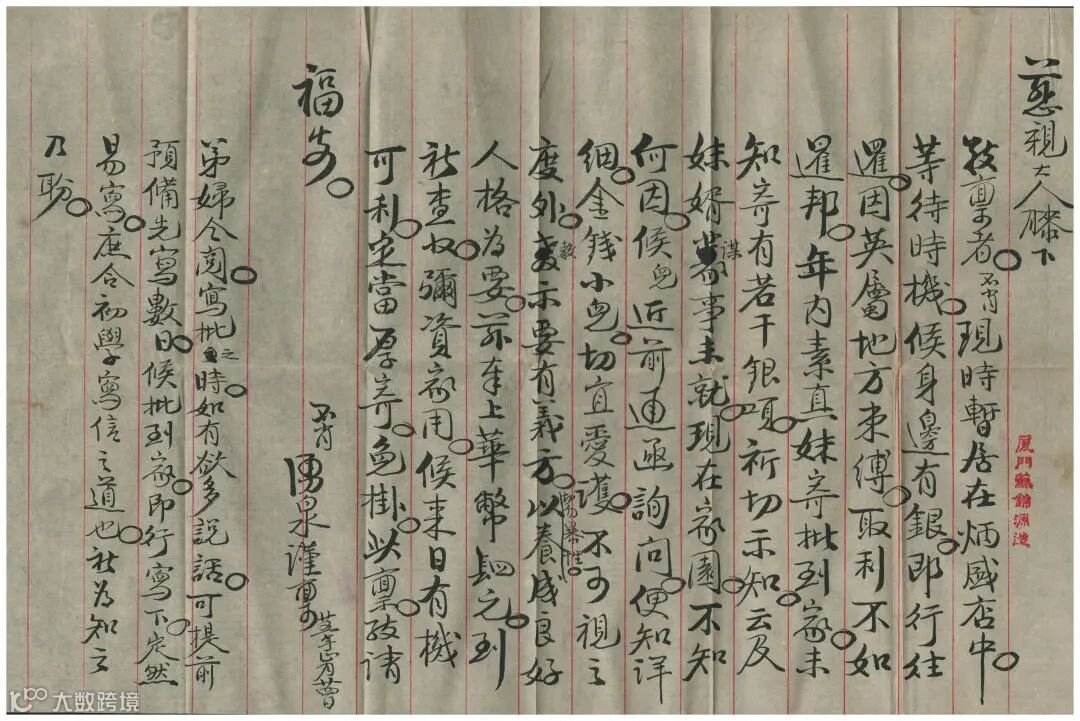 慈親大人膝下
敬稟者。不肖現時暫居在炳盛店中。
等待時機。候身邊有銀。即行往
暹。因英屬地方束縛。取利不如
暹邦。年內素真妹寄批到家。未
知寄有若干銀項。祈切示知。云及
妹婿謀事未就。現在家園。不知
何因。候兒近前通函詢问。便知詳
細。金錢小兒。切宜愛護。不可視之
度外。教示要有義方。以養成良好
人格為要。茲奉上華幣四元。到
祈查收。彌資家用。候來日有機
可利。定當厚寄。免掛。此稟。敬請
福安。
不肖 勇泉謹稟
弟婦今閱寫批之時。如有欲多說話。可提前
預備先寫數日。候批到家。即行寫下。定然
易寫。庶合初學寫信之道也。祈為知之
乃盼。
廈門蘇錦源造
大数跨境